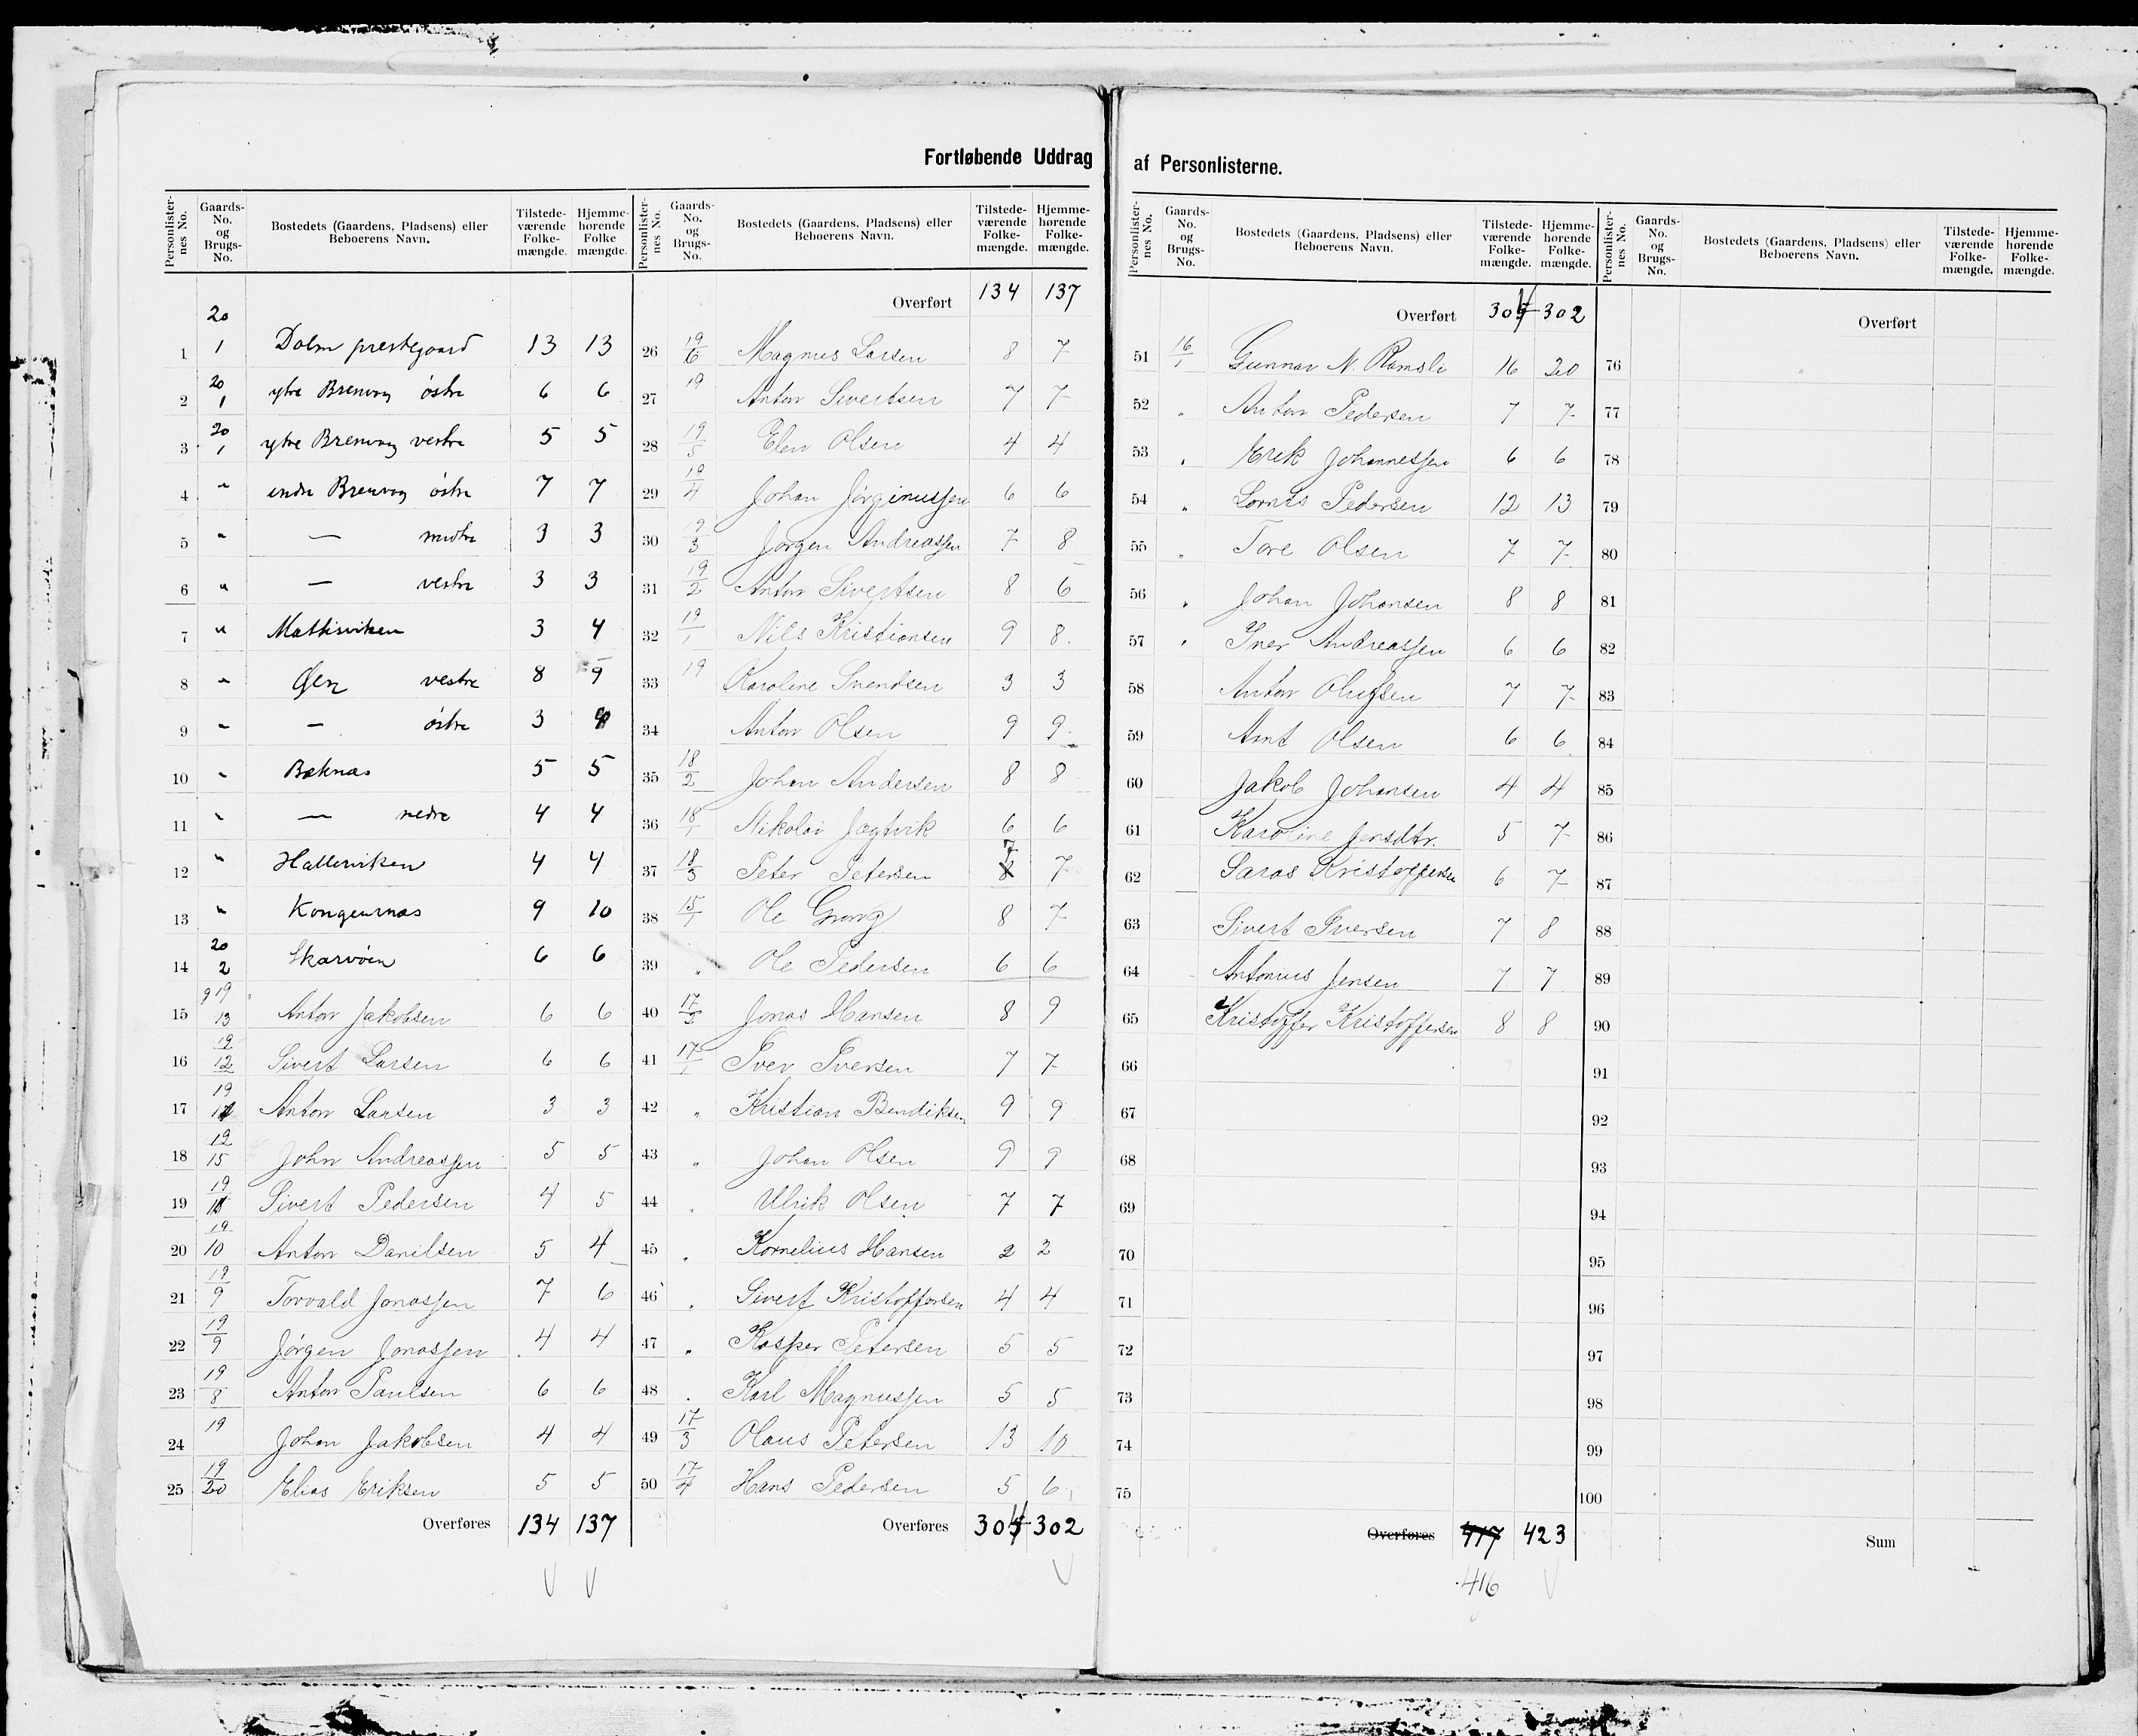 Fortløbende Uddrag af Personlisterne.
Personlister-nes No. | Gaards-No. og Brugs-No. | Bostedets (Gaardens, Pladsens) eller Beboerens Navn. | Tilstede-værende Folke-mængde. | Hjemme-hørende Folke mængde.
1 20/1 Dolm prestegaard 13 13
2 20/1 ytre Brenvag östre 6 6
3 20/1 ytre Brenvag vestre 5 5
4 " indre Brenvag östre 7 7
5 " — midtre 3 3
6 " — vestre 3 3
7 " Mathisviken 3 4
8 " vestre 8 9
9 " — östre 3
10 " Beknæs 5 5
11 " — nedre 4 4
12 " Hallerviken 4 4
13 " Kongensnæs 9 10
14 20/2 Skarvöen 6 6
15 19/13 Anton Jakobsen 6 6
16 19/12 Sivert Larsen 6 6
17 19 Anton Larsen 3 3
18 19/15 John Andreassen 5 5
19 19 Sivert Pedersen 4 5
20 19/10 Anton Danilsen 5 4
21 19/9 Torvald Jonassen 7 6
22 19/9 Jørgen Jonassen 4 4
23 19/8 Anton Paulsen 6 6
24 19 Johan Jakobsen 4 4
25 19/20 Elias Eriksen 5 5
Overføres 134 137
Personlister-nes No. | Gaards-No. og Brugs-No. | Bostedets (Gaardens, Pladsens) eller Beboerens Navn. | Tilstede-værende Folke-mængde. | Hjemme-hørende Folke-mængde.
Overført 134 137
26 19/6 Magnus Larsen 8 7
27 19 Anton Sivertsen 7 7
28 19/5 Elen Olsen 4 4
29 19/4 Johan Jørginussen 6 6
30 19/3 Jørgen Andreassen 7 8
31 19/2 Anton Sivertsen 8 6
32 19/1 Nils Kristiansen 9 8
33 19 Karoline Svendsen 3 3
34 Anton Olsen 9 9
35 18/2 Johan Andersen 8 8
36 18/1 Nikolai Jægtvik 6 6
37 18/3 Peter Petersen 7 7
38 15/1 Ole 8 7
39 " Ole Pedersen 6 6
40 17/2 Jonas Hansen 8 9
41 17/1 Iver Iversen 7 7
42 " Kristian Bendiksen 9 9
43 " Johan Olsen 9 9
44 " Ulrik Olsen 7 7
45 " Kornelius Hansen 2 2
46 " Sivert Kristoffersen 4 4
47 " Kasper Petersen 5 5
48 " Karl Magnussen 5 5
49 17/3 Olaus Petersen 13 10
50 17/4 Hans Pedersen 5 6
Overføres 304 302
Personlister-nes No. | Gaards-No. og Brugs-No. | Bostedets (Gaardens, Pladsens) eller Beboerens Navn. | Tilstede-værende Folke-mængde. | Hjemme-hørende Folke-mængde.
Overført 304 302
51 16/1 Gunnar N. Ramsli 16 20
52 " Anton Pedersen 7 7
53 " Erik Johannessen 6 6
54 " Pedersen 12 13
55 " Tore Olsen 7 7
56 " Johan Johansen 8 8
57 " Iver Andreassen 6 6
58 Anton Olufsen 7 7
59 Arnt Olsen 6 6
60 Jakob Johansen 4 4
61 Karoline Jensdtr. 5 7
62 Kristoffersen 6 7
63 Sivert Iversen 7 8
64 Antonius Jensen 7 7
65 Kristoffer Kristoffersen 8 8
66
67
68
69
70
71
72
73
74
75
Overføres 417 423
416
Personlister-nes No. | Gaards-No. og Brugs-No. | Bostedets (Gaardens, Pladsens) eller Beboerens Navn. | Tilstede-værende Folke-mængde. | Hjemme-hørende Folke-mængde.
Overført
76
77
78
79
80
81
82
83
84
85
86
87
88
89
90
91
92
93
94
95
96
97
98
99
100
Sum